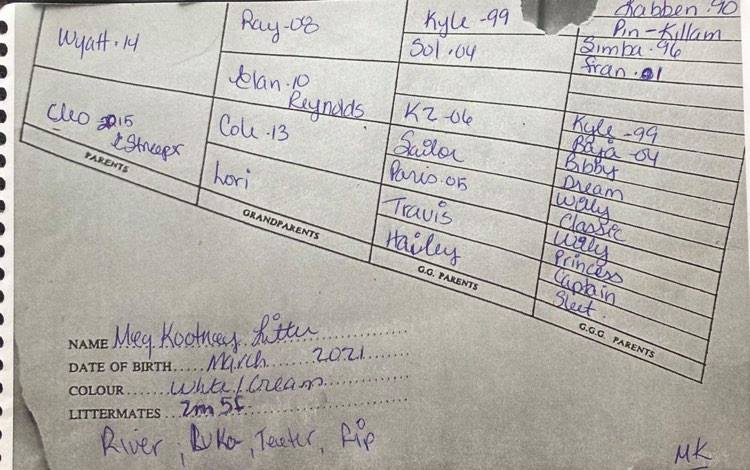 Wyatt · 14
Cleo 2015
PARENTS
Ray - 08
Elan · 10
Reynolds
Cole · 13
Lori
GRANDPARENTS
Kyle - 99
Sol · 04
K2 - 06
Sailor
Paris · 05
Travis
Hailey
G.G. PARENTS
Pin - Killam
Simba · 96
Fran · 01
Kyle - 99
Baja - 04
Bibby
Dream
Wily
Classic
Wily
Princess
Captain
Sleet
G.G.G. PARENTS
NAME Meg Kootney Litter
DATE OF BIRTH..... March 2021
COLOUR...... White / Cream
LITTERMATES ... 2m 5f
River, Teeter, Rip
MK